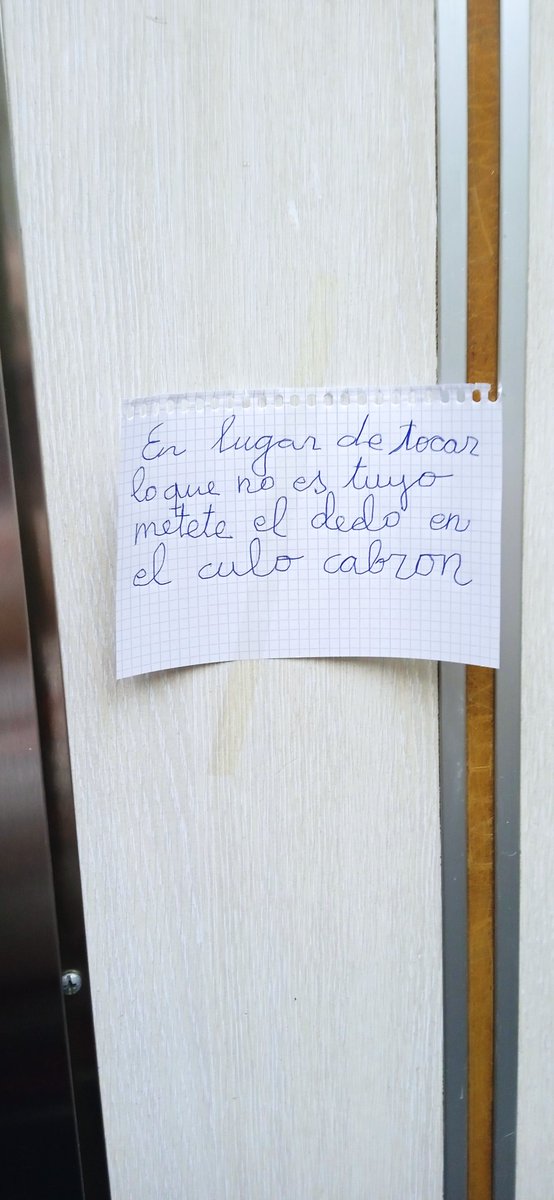 En lugar de tocar
lo que no es tuyo
metete el dedo en
el culo cabron